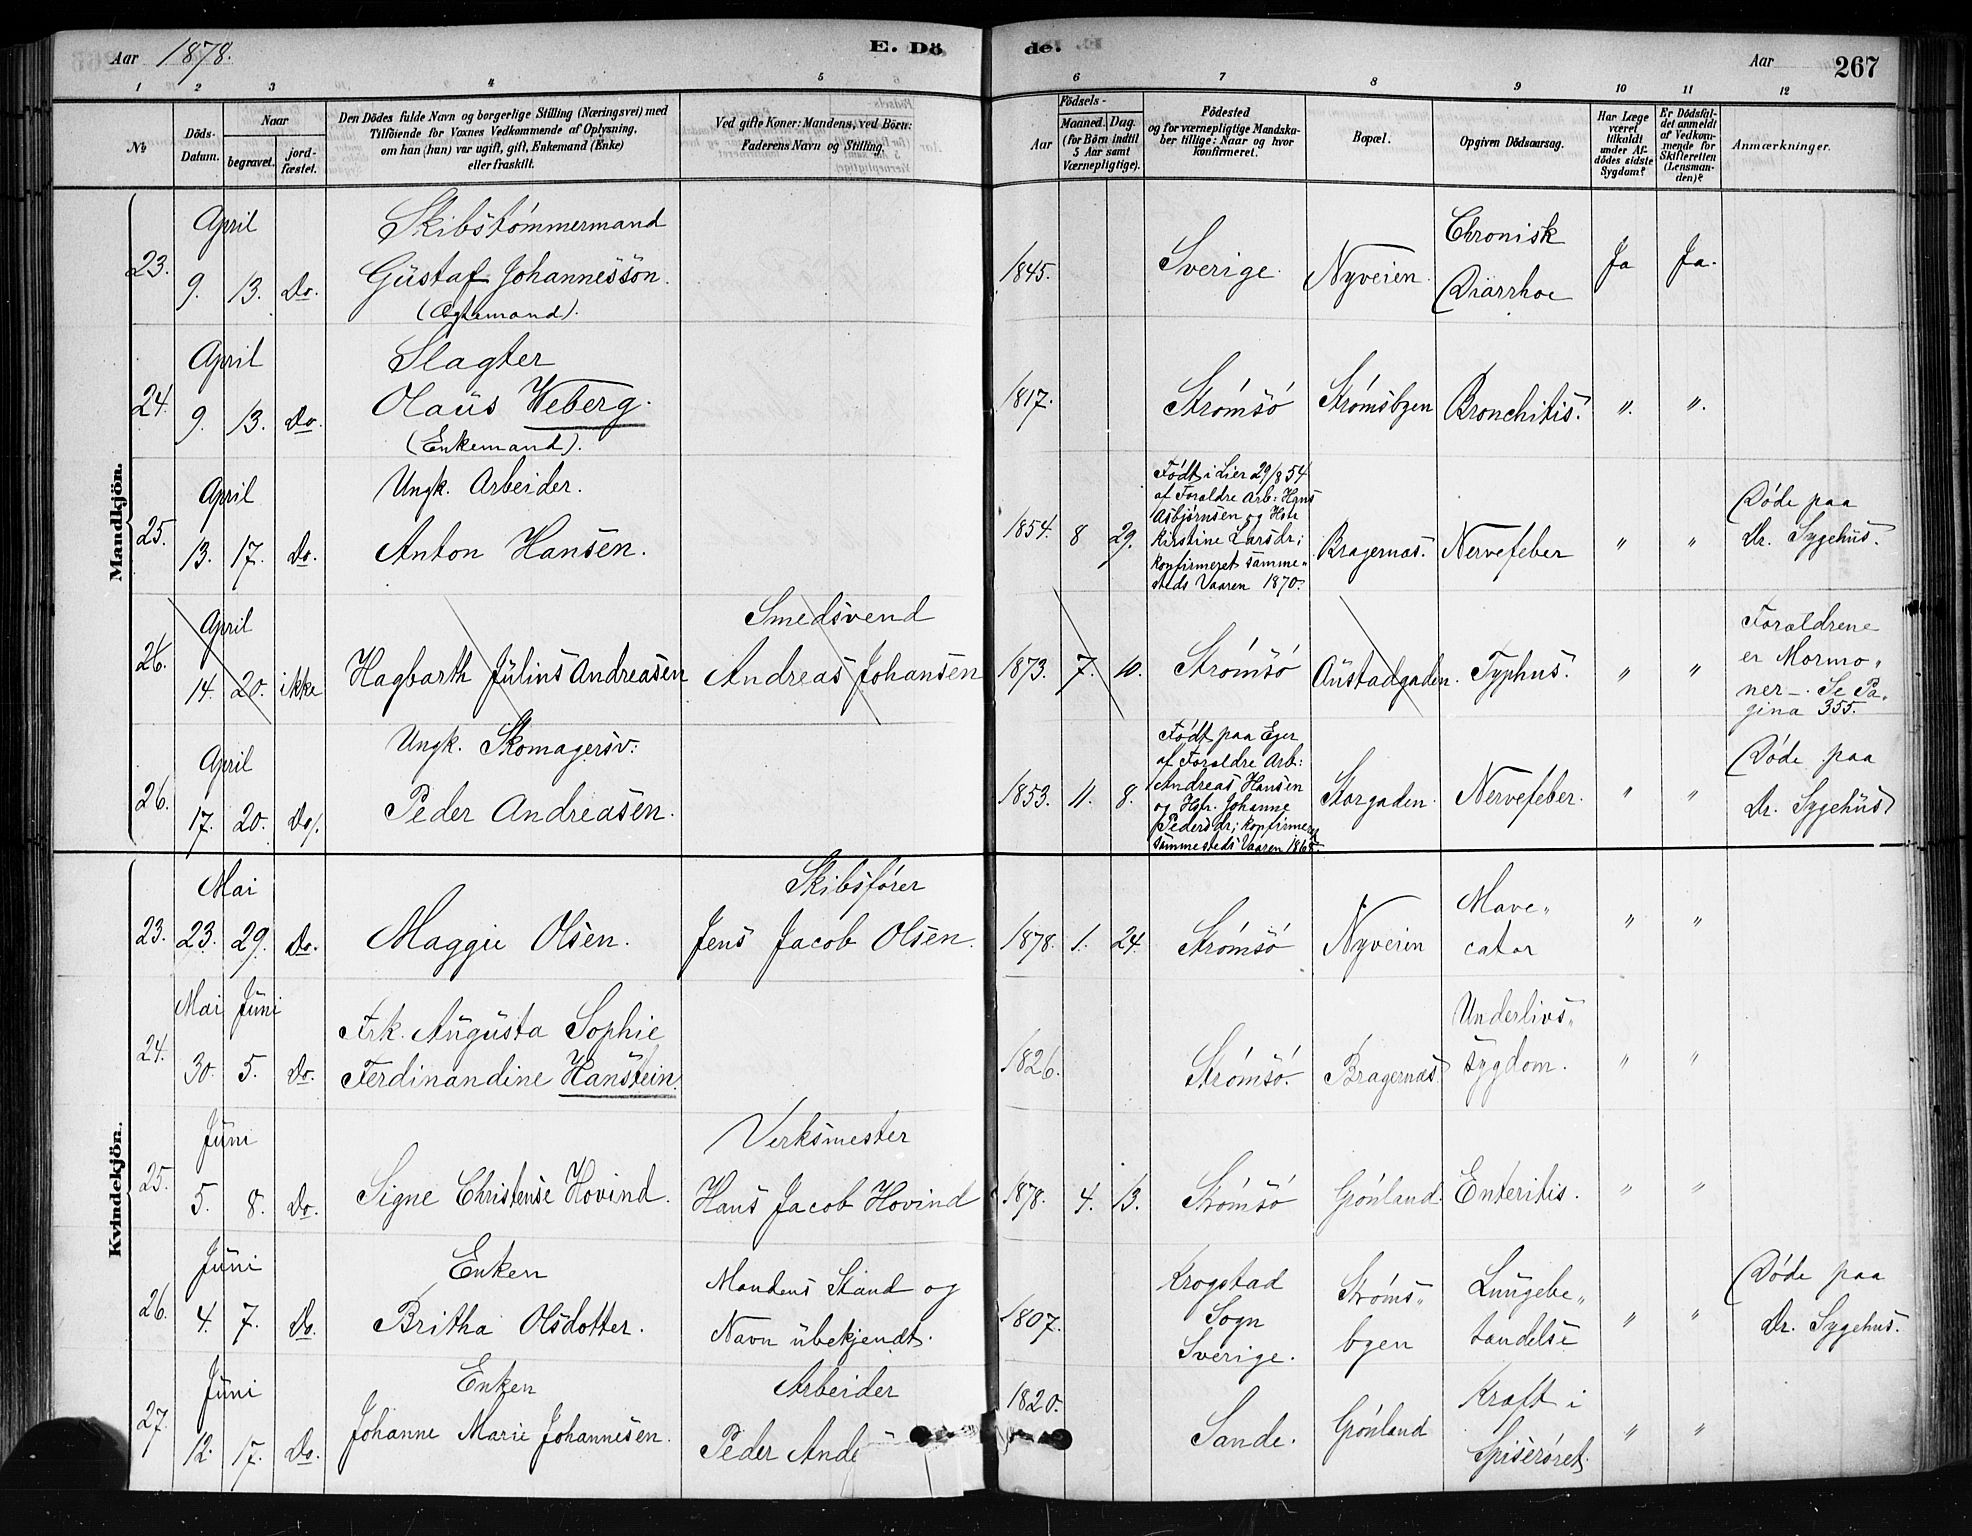 Aar 1878.
E. Dö
de.
Aar
267
1 2 3 4 5 6 7 8 9 10 11 12
No
Döds-
Datum.
Naar
begravet.
jord-
fæstet.
Den Dödes fulde Navn og borgerlige Stilling (Næringsvei) med
Tilföiende for Voxnes Vedkommende af Oplysning,
om han (hun) var ugift, gift, Enkemand (Enke)
eller fraskilt.
Ved gifte Koner: Mandens, ved Börn:
Faderens Navn og Stilling.
Födsels-
Aar
Maaned.
Dag.
(for Börn indtil
5 Aar samt
Værnepligtige).
Födested
og for værnepligtige Mandska-
ber tillige: Naar og hvor
konfirmeret.
Bopæl.
Opgiven Dödsaarsag.
Har Læge
været
tilkaldt
under Af-
dödes sidste
Sygdom?
Er Dödsfal-
det anmeldt
af Vedkom-
mende for
Skifteretten
(Lensman-
den)?
Anmærkninger.
Mandkjön.
23.
April
9. 13. Do.
Skibstömmermand
Gustaf Johannesson.
(Ægtemand).
1845.
Sverige.
Nyveien.
Chronisk
Diarrhoe
Ja
Ja.
24.
April
9. 13. Do.
Slagter
Olaus Weberg.
(Enkemand).
1817.
Strömsö
Strömsbyen
Bronchitis.
". ".
25.
April
13. 17. Do.
Ungk. Arbeider.
Anton Hansen.
1854. 8 29.
Födt i Lier 29/8 54
af Forældre Arb: Hans
Asbjörnsen og Hstr.
Kirstine Larsdr;
konfirmeret samme-
steds Vaaren 1870.
Bragernæs.
Nervefeber
" "
Döde paa
Dr. Sygehus.
26.
April
14. 20. ikke
Hagbarth Julius Andreasen
Smedsvend
Andreas Johansen
1873. 7. 10.
Strömsö
Austadgaden.
Typhus.
" "
Forældrene
er Mormo-
ner -. Se Pa-
gina 355.
26.
April
17. 20. Do.
Ungk. Skomagersv:
Peder Andreasen.
1853. 11. 8.
Födt paa Eger
af Forældre Arb:
Andreas Hansen
og Hstr. Johanne
Pedersdr; konfirmeret
sammesteds Vaaren
Storgaden.
Nervefeber.
" "
Döde paa
Dr. Sygehus
Kvindekjön.
23.
Mai
23. 29. Do.
Maggie Olsen.
Skibsförer
Jens Jacob Olsen.
1878. 1. 24.
Strömsö
Nyveien
Mave-
catar
" "
24.
Mai Juni
30. 5. Do.
Frk. Augusta Sophie
Ferdinandine Hanstein.
1826.
Strömsö.
Bragernæs
Underlivs-
sygdom.
" "
25.
Juni
5. 8. Do.
Signe Christense Hovind.
Verksmester
Hans Jacob Hovind
1878. 4. 13.
Strömsö
Grönland.
Enteritis.
" "
26.
Juni
4. 7. Do.
Enken
Britha Olsdotter.
Mandens Stand og
Navn ubekjendt.
1807.
Krogstad
Sogn
Sverige.
Ströms-
byen
Lungebe-
tændelse
" "
Döde paa
Dr. Sygehus.
27.
Juni
12. 17. Do.
Enken
Johanne Marie Johannesen.
Arbeider
Peder Ande
1820.
Sande.
Grönland
Kræft i
Spiseröret.
" "